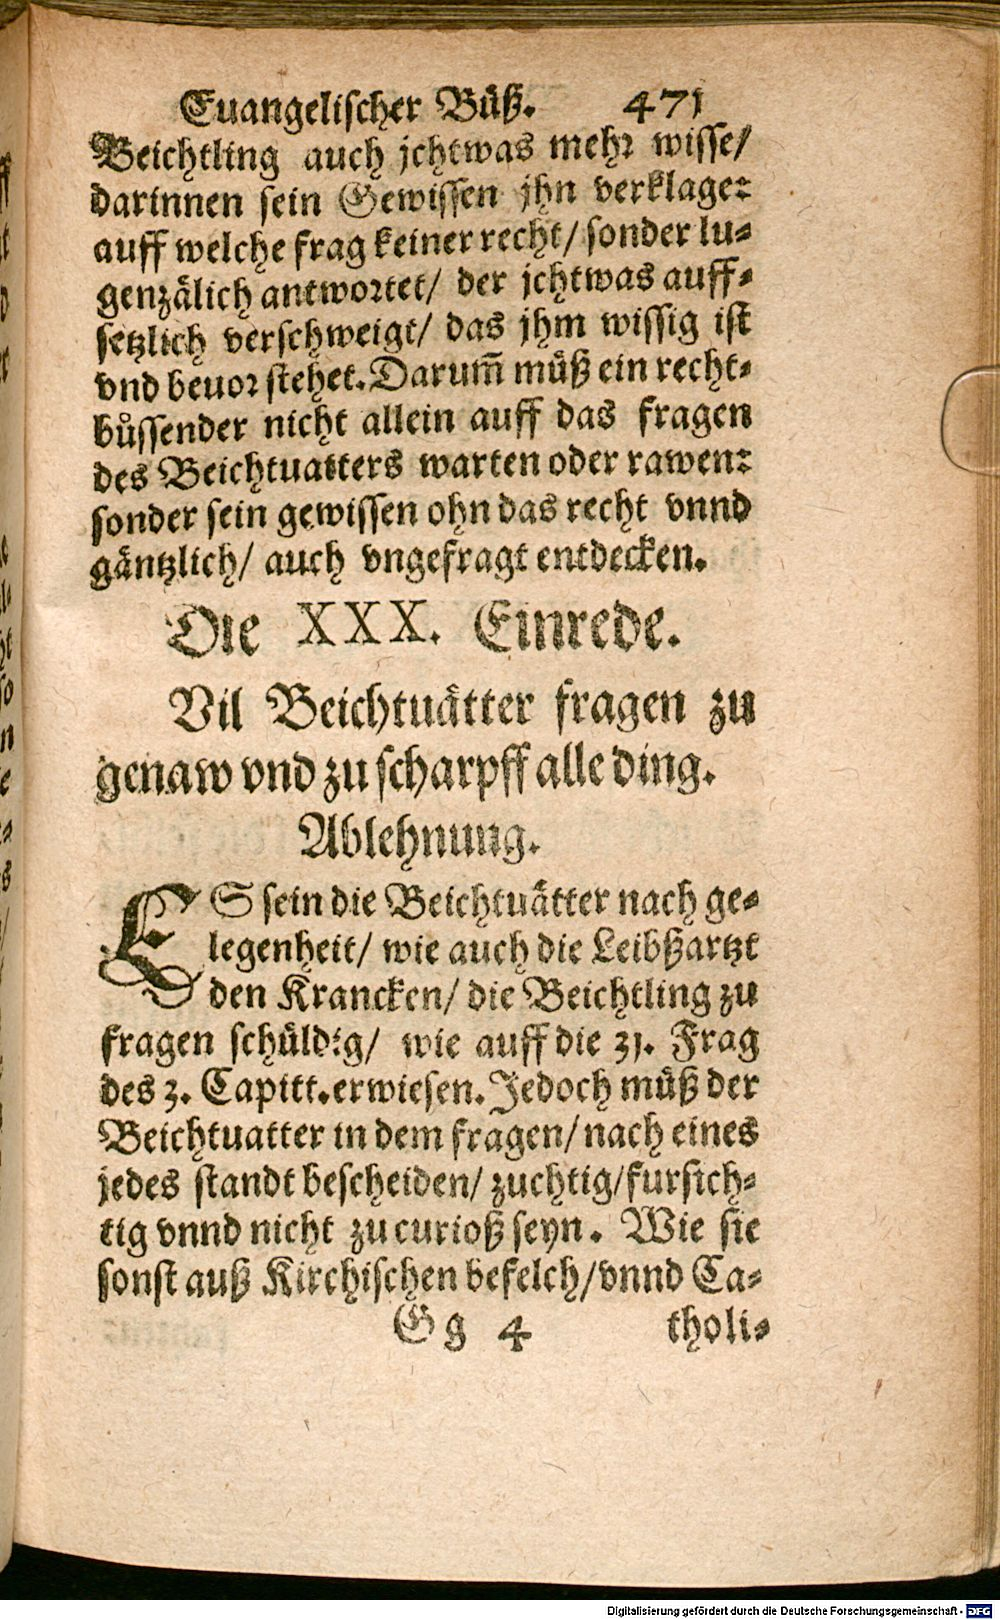 Euangelischer Büß. 471
Beichtling auch jchtwas mehr wisse/
darinnen sein Gewissen jhn verklage:
auff welche frag keiner recht/ sonder lu-
genzälich antwortet/ der jchtwas auff-
setzlich verschweigt/ das jhm wissig ist
vnd beuor stehet. Darum̃ müß ein recht-
bůssender nicht allein auff das fragen
des Beichtuatters warten oder rawen:
sonder sein gewissen ohn das recht vnnd
gäntzlich/ auch vngefragt entdecken.
Die XXX. Einrede.
Vil Beichtuätter fragen zu
genaw vnd zu scharpff alle ding.
Ablehnung.
ES sein die Beichtuätter nach ge-
legenheit/ wie auch die Leibßartzt
den Krancken/ die Beichtling zu
fragen schüldig/ wie auff die 31. Frag
des 3. Capitt. erwiesen. Jedoch müß der
Beichtuatter in dem fragen/ nach eines
jedes standt bescheiden/ zuchtig/ fursich-
tig vnnd nicht zu curioß seyn. Wie sie
sonst auß Kirchischen befelch/ vnnd Ca-
Gg 4 tholi-
Digitalisierung gefördert durch die Deutsche Forschungsgemeinschaft - DFG